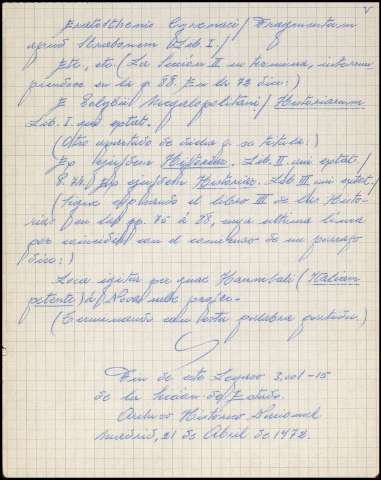 V
Eratosthenis Cyrenaci / Fragmentum
apud Strabonem Lib. I. /
Etc, etc. (La Sección II no termina, interrum-
piéndose en la p. 88. En la 73 dice:)
E Polybii Megalopolitani / Historiarum
Lib. I. qui extat.
(Otro apartado de dicha p. se titula:)
Ex ejusdem Historiis. Lib. II. qui extat /
P. 74. Ex ejusdem Historiis. Lib. III. qui extat. /
(Sigue copiando el libro III de las Histo-
rias en las pp. 75 a 88, cuya última línea
por coincidir con el comienzo de un pasaje
dice:)
Loca igitur per quae Hannibali (Italiam
petente) à Nova usque profec-
(Terminando con esta palabra partida.)
Fin de este Legajo 3.001-15
de la Sección de Estado.
Archivo Histórico Nacional
Madrid, 21 de Abril de 1972.